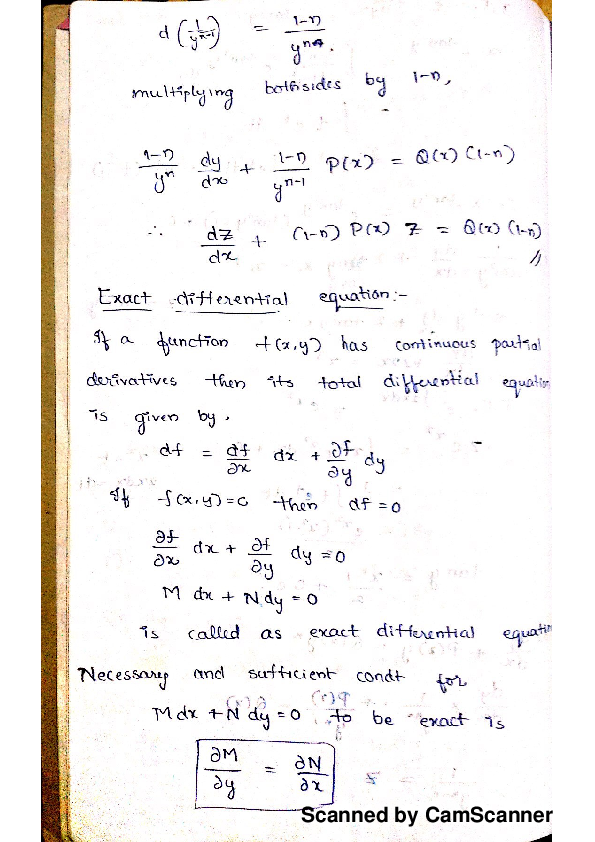 d (1/y^{n-1}) = 1-n/y^n.
multiplying both sides by 1-n,
1-n/y^n dy/dx + 1-n/y^{n-1} P(x) = Q(x) (1-n)
∴ dz/dx + (1-n) P(x) Z = Q(x) (1-n) //
Exact differential equation:-
If a function f(x,y) has continuous partial
derivatives then its total differential equation
is given by,
df = ∂f/∂x dx + ∂f/∂y dy
If f(x,y)=c then df=0
∂f/∂x dx + ∂f/∂y dy =0
M dx + N dy = 0
is called as exact differential equation
Necessary and sufficient condt for
M dx + N dy = 0 to be exact is
∂M/∂y = ∂N/∂x
Scanned by CamScanner